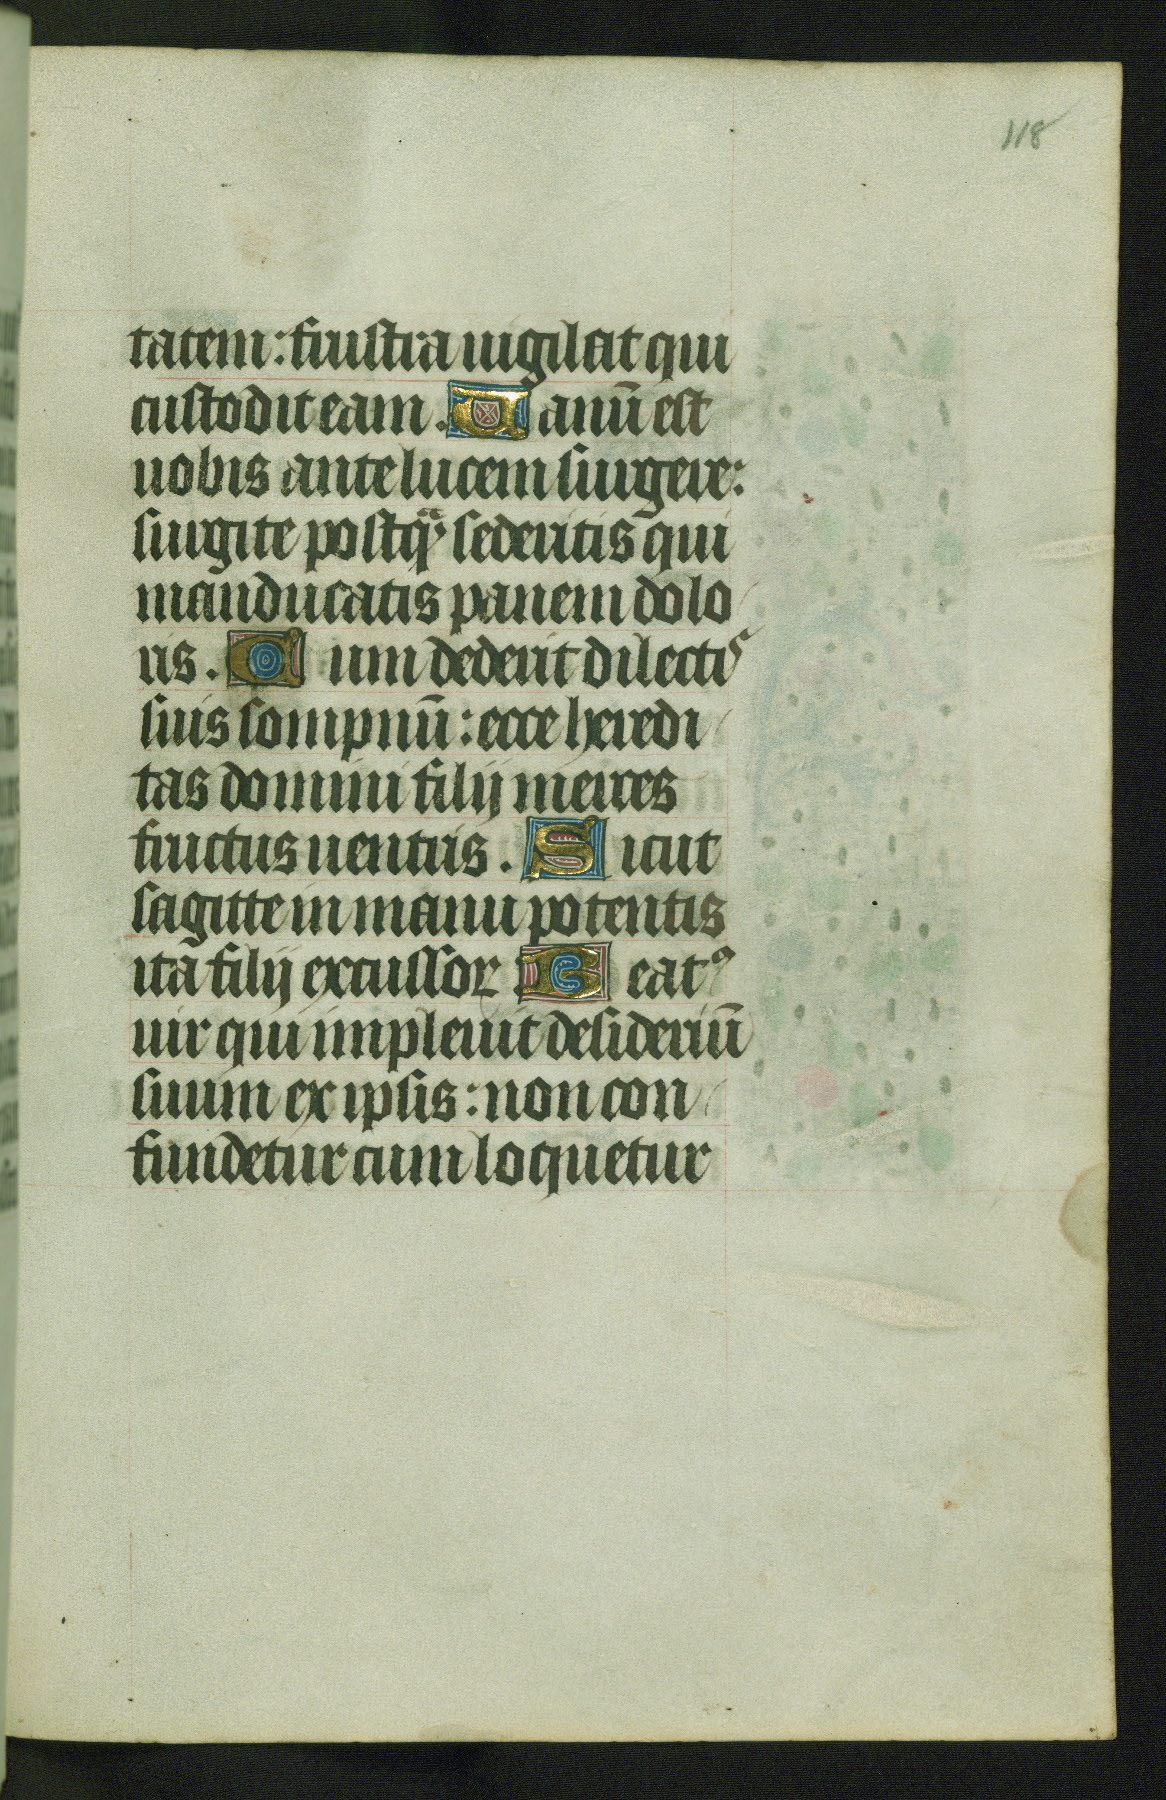 118
tatem: frustra uigilat qui
custodit eam. Uanũ est
uobis ante lucem surgere:
surgite postqᷓ sederitis qui
manducatis panem dolo
ris. Cum dederit dilectis
suis sompnũ: ecce heredi
tas domini filij merces
fructus uentris. Sicut
sagitte in manu potentis
ita filij excussoꝝ. Beatꝰ
uir qui impleuit desideriũ
suum ex ipsis: non con
fundetur cum loquetur